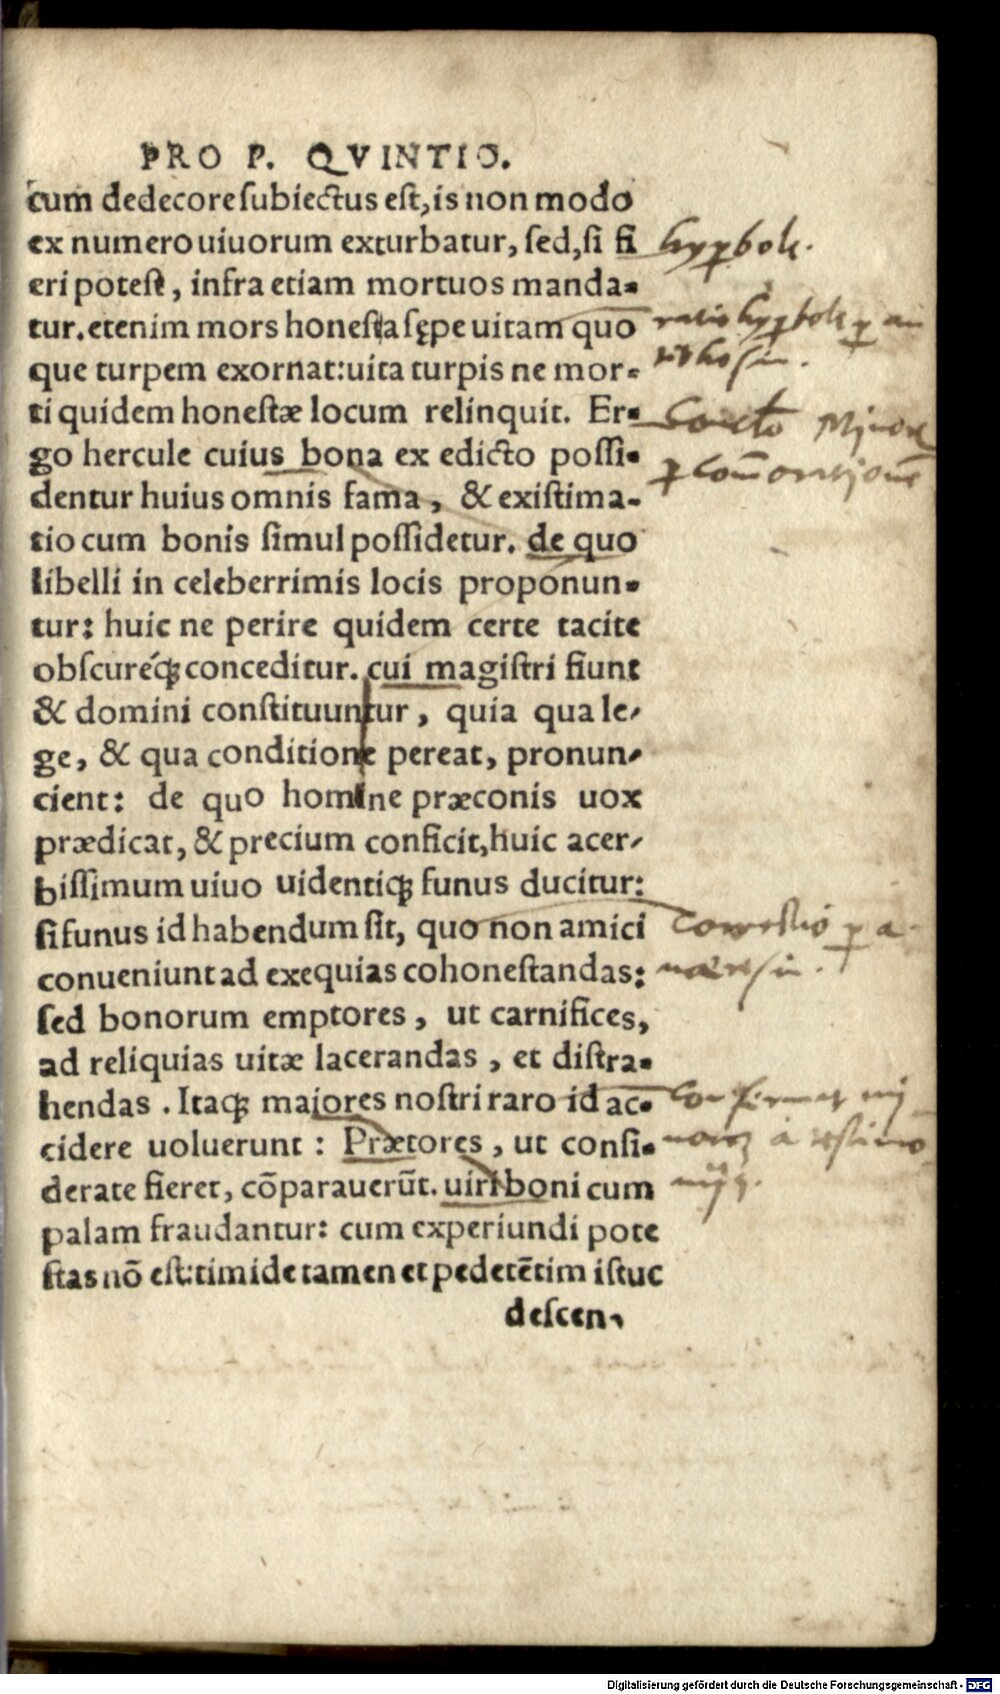 PRO P. QVINTIO.
cum dedecore subiectus est, is non modo
ex numero uiuorum exturbatur, sed, si fi
eri potest, infra etiam mortuos manda-
tur. etenim mors honesta sępe uitam quo
que turpem exornat: uita turpis ne mor-
ti quidem honestæ locum relinquit. Er-
go hercule cuius bona ex edicto possi-
dentur huius omnis fama, & existima-
tio cum bonis simul possidetur. de quo
libelli in celeberrimis locis proponun-
tur: huic ne perire quidem certe tacite
obscureq́; conceditur. cui magistri fiunt
& domini constituuntur, quia qua le-
ge, & qua conditione pereat, pronun-
cient: de quo homine præconis uox
prædicat, & precium conficit, huic acer-
bissimum uiuo uidentiq; funus ducitur:
si funus id habendum sit, quo non amici
conueniunt ad exequias cohonestandas:
sed bonorum emptores, ut carnifices,
ad reliquias uitæ lacerandas, et distra-
hendas. Itaq; maiores nostri raro id ac-
cidere uoluerunt: Prætores, ut consi-
derate fieret, cõparauerũt. uiri boni cum
palam fraudantur: cum experiundi pote
stas nõ est: timide tamen et pedetẽtim istuc
descen-
hyꝑbole.
ratio hyꝑbole ꝑ an
tithesin.
Minor
ꝑ com̄orationē
Correctio ꝑ a
Confirmat mi
norē à testimo
Digitalisierung gefördert durch die Deutsche Forschungsgemeinschaft - DFG